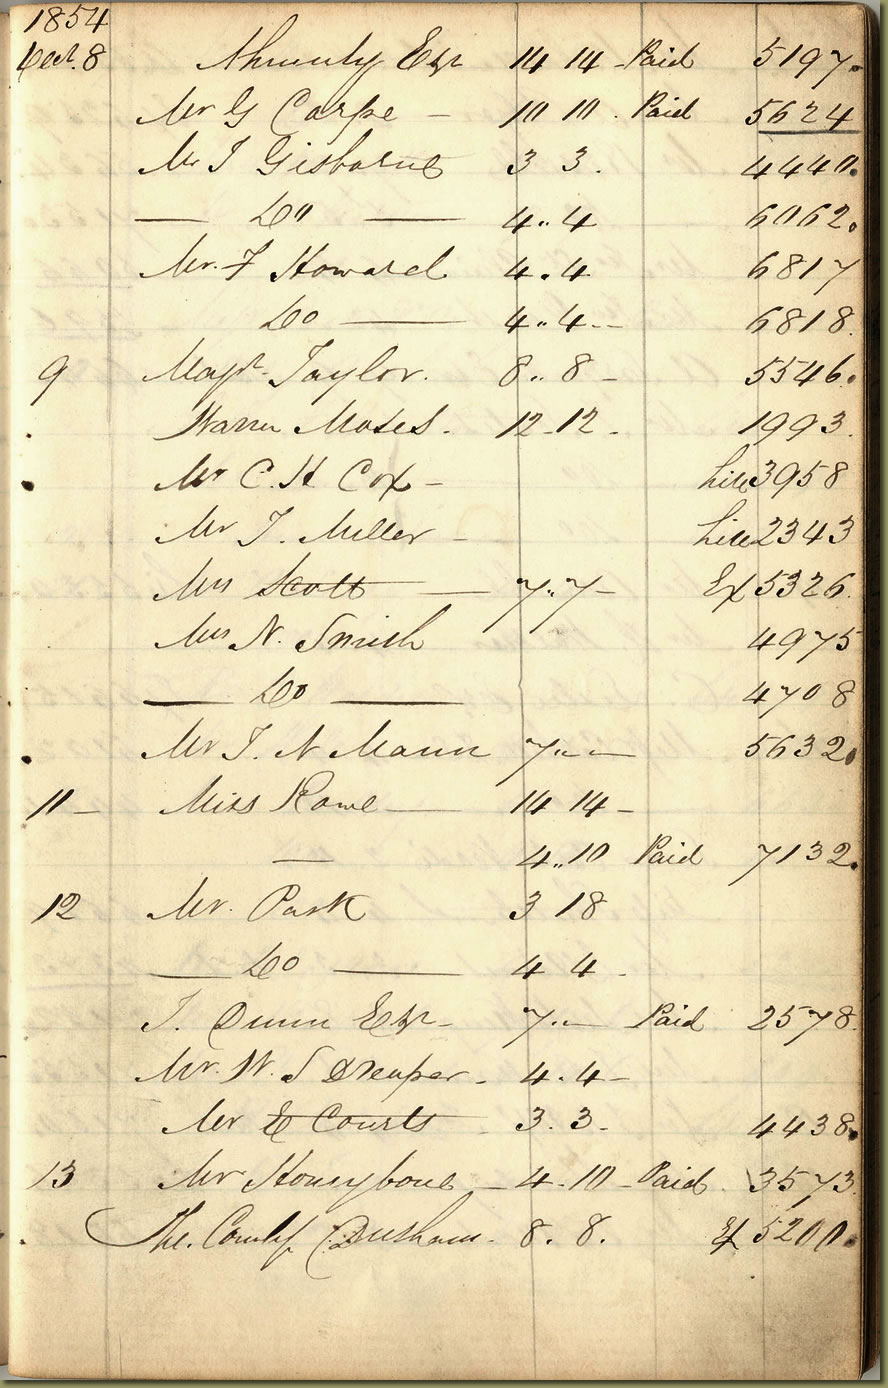 1854
Dec. 8 Esqr 14 14 - Paid 5197.
Mr G Carpe - 10 10. Paid 5624
Mr J Gisborne 3 3. 4440.
— Do — 4.. 4 6062.
Mr. F Howard 4. 4 6817
Do — 4.. 4.- 6818.
9 Majr. Taylor. 8.. 8 - 5546.
Moses. 12-12. 1993.
Mr C. H Cox - hire 3958
Mr T. Miller - hire 2343
Mrs Scott — 7.. 7 - Ex 5326.
Mrs N. Smith 4975
— Do — 4708
Mr T. N Mann 7..- — 5632.
11 - Miss Rowe — 14 14 -
— 4.. 10 Paid 7132.
12 Mr. Park 3 18
— Do — 4 4.
T. Dunn Esqr - 7.. - Paid 2578.
Mr. W. S Dreaper - 4. 4 -
Mr E Courts - 3. 3. 4438.
13 Mr Honeybone - 4. 10 - Paid. 3573.
The. 8. 8. Ex 5200.